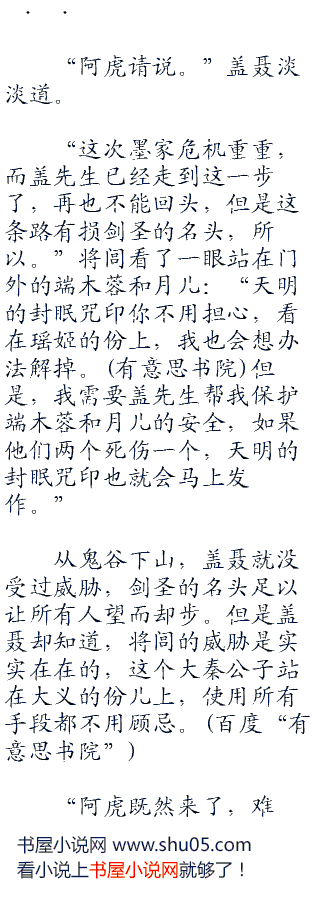 . .
“阿虎请说。”盖聂淡
淡道。
“这次墨家危机重重，
而盖先生已经走到这一步
了，再也不能回头，但是这
条路有损剑圣的名头，所
以。”将闾看了一眼站在门
外的端木蓉和月儿：“天明
的封眠咒印你不用担心，看
在瑶姬的份上，我也会想办
法解掉。(有意思书院)但
是，我需要盖先生帮我保护
端木蓉和月儿的安全，如果
他们两个死伤一个，天明的
封眠咒印也就会马上发
作。”
从鬼谷下山，盖聂就没
受过威胁，剑圣的名头足以
让所有人望而却步。但是盖
聂却知道，将闾的威胁是实
实在在的，这个大秦公子站
在大义的份儿上，使用所有
手段都不用顾忌。(百度“有
意思书院”)
“阿虎既然来了，难
书屋小说网 www.shu05.com
看小说上书屋小说网就够了！